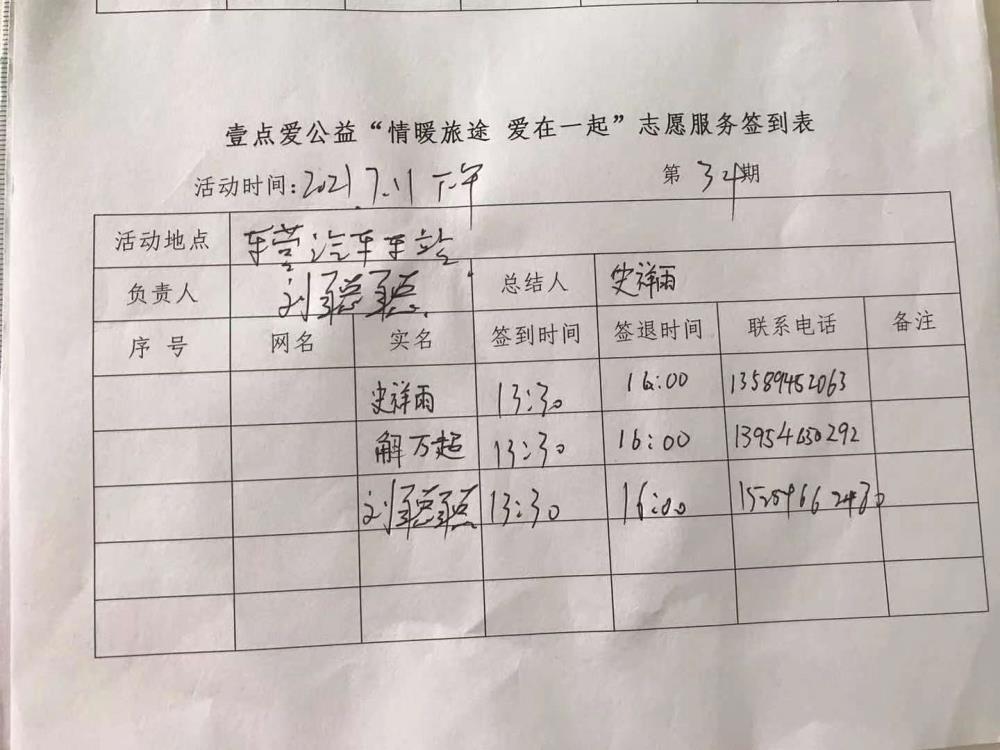 壹点爱公益“情暖旅途 爱在一起”志愿服务签到表
活动时间:2021.7.11 下午 第 34 期
活动地点 东营汽车车站
负责人 刘聪聪 总结人 史祥雨
序号 网名 实名 签到时间 签退时间 联系电话 备注
史祥雨 13:30 16:00 13589452063
解万超 13:30 16:00
刘聪聪 13:30 16:00